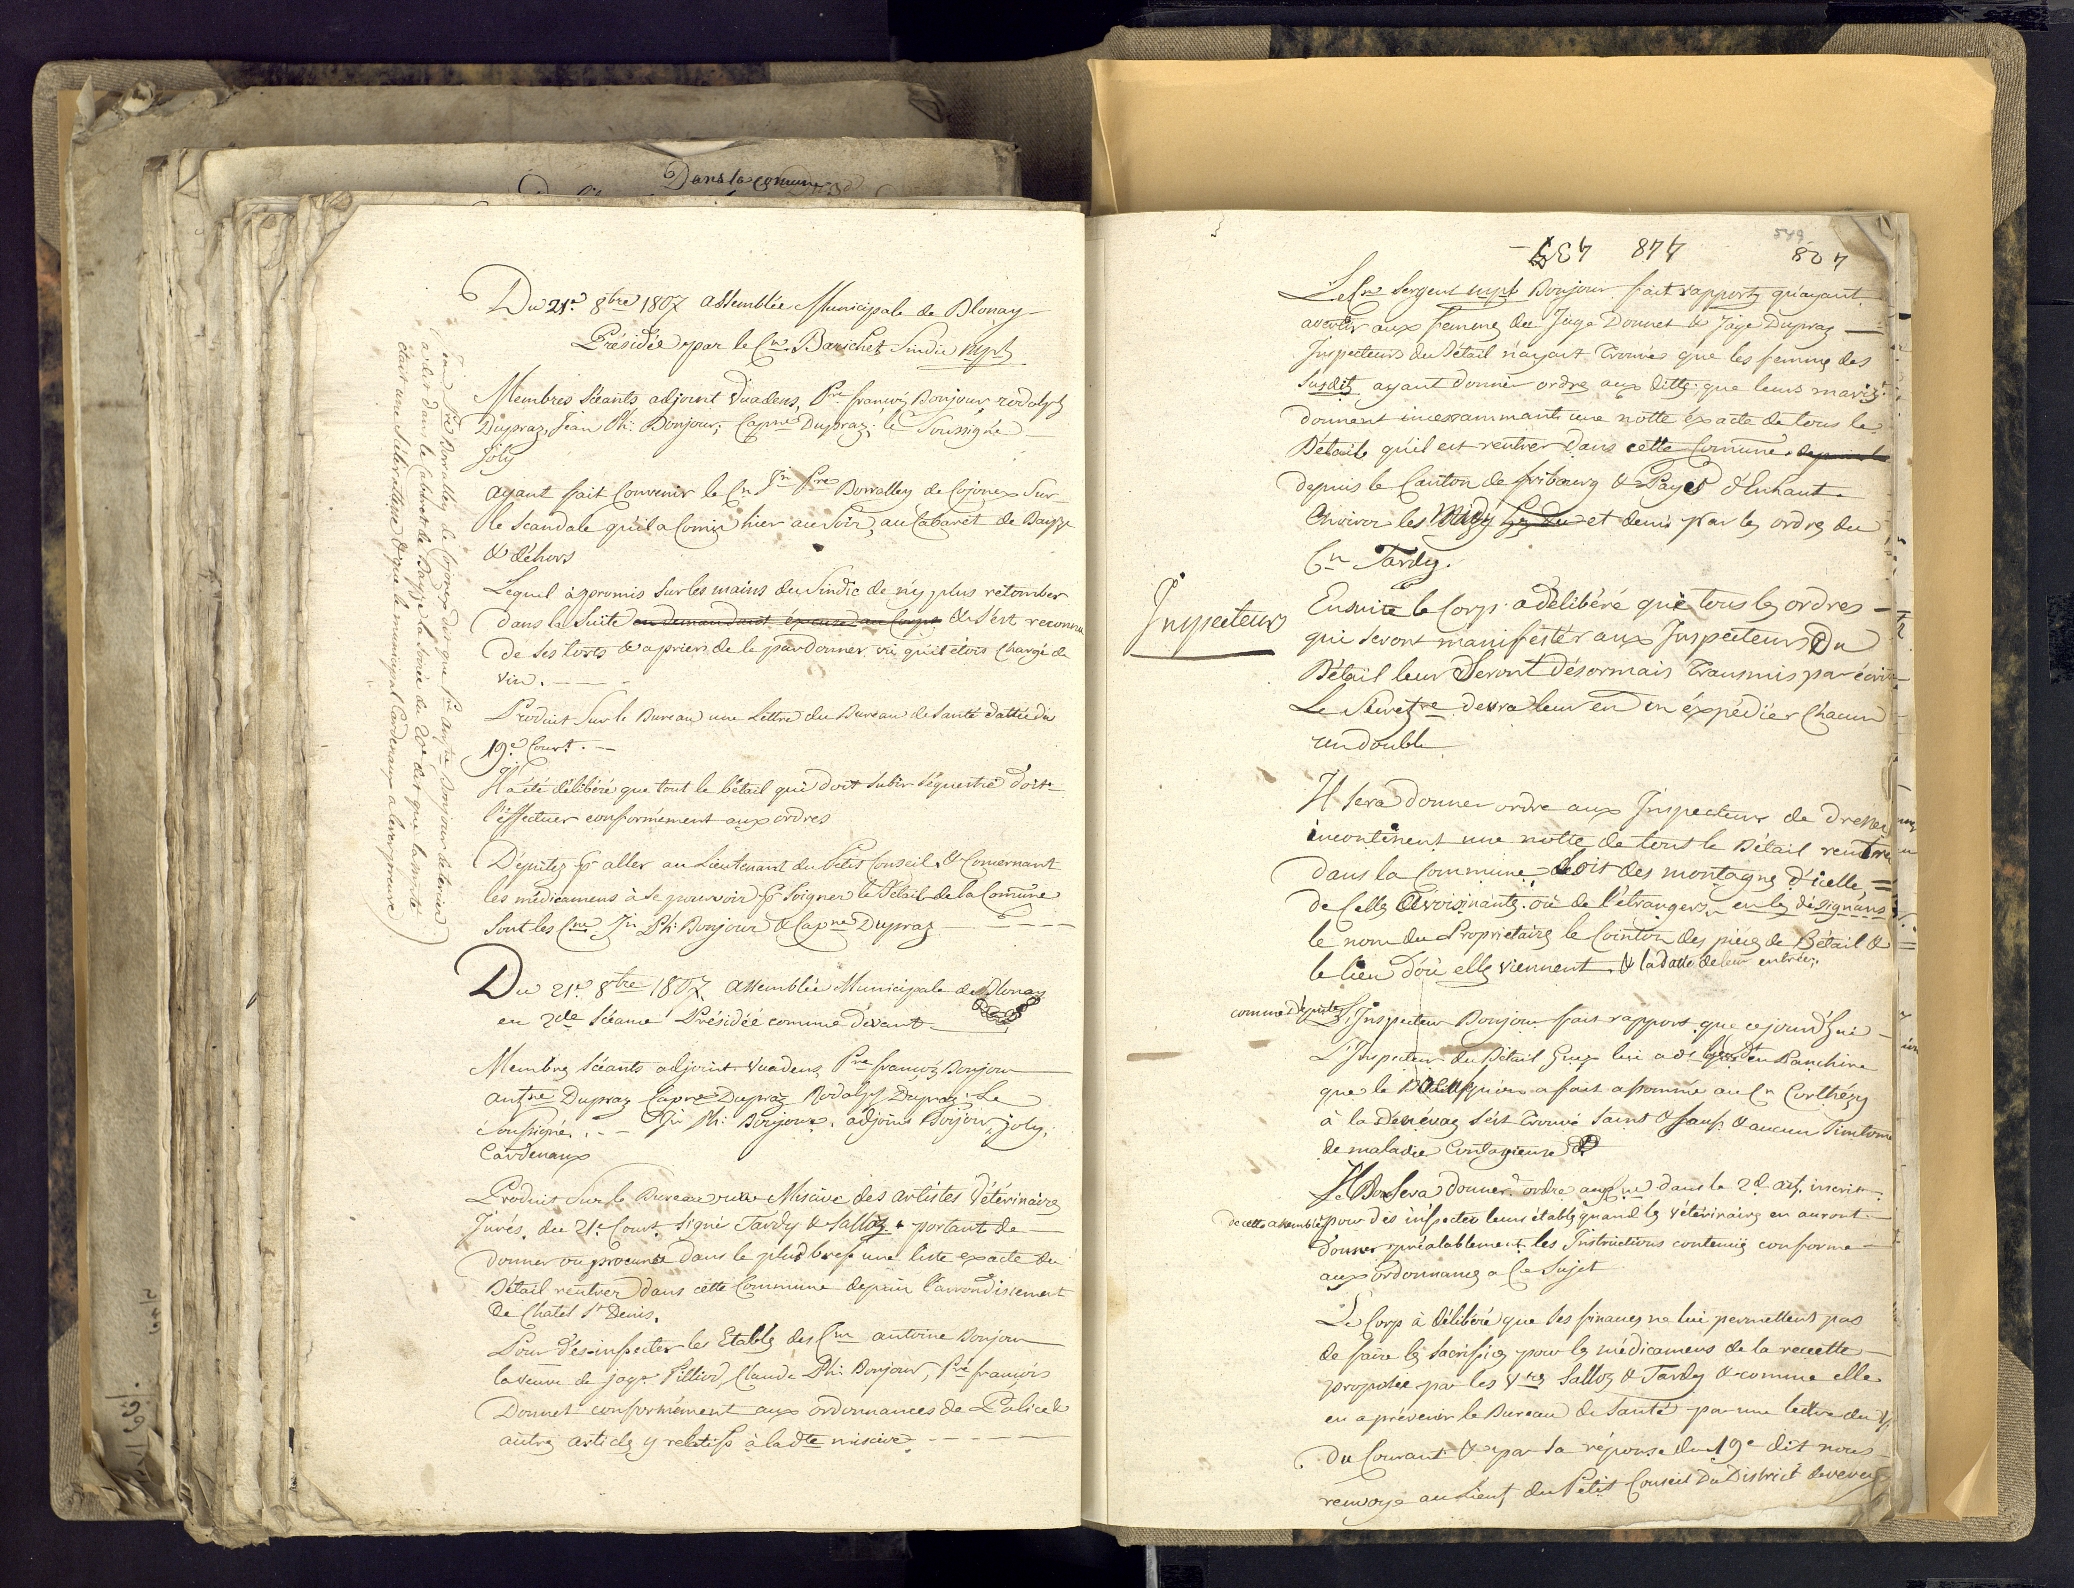 Dans la comune
Du 21e. 8bre 1807 assemblée Municipale de Blonay
Présidée par le Cn. Barichet Sindic mpl
Membres Séants adjoint Vuadens, Pre françs Bonjour rodolph
Dupraz, Jean Ph: Bonjour, Capne Dupraz, le Soussigné
Joly
ayant fait Convenir le Cn Jn Pre Borralley de Cojonex Sur
le Scandale qu'il a Comis hier au Soir, au Cabaret de Bayse
& déhors
Lequel à promis Sur les mains du Sindic de n'y plus retomber
dans la Suite en demandant éxcuse au Corps & s'est reconnu
de Ses torts & a prier de le pardonner vû qu'il étois Chargé de
vin.
Jean Pre Borralley de Cojonex dit que
a dit dans le Cabaret de Bayse la soirée du 20e dit que la
étoit une & que le municipal Cardenaux a lever preuve
Produit Sur le Bureau une Lettre du Bureau de Santé dattée du
19e. Court.
Il à été délibéré que tout le bétail qui doit subir Séquestre doit
l'éffectuer conformément aux ordres
Députez pr aller au Lieutenant du Petit Conseil & Concernant
les médicamens à se pourvoir pr Soigner le Bétail de la Comune
Sont les Cns Jn Ph: Bonjour & Capne Dupraz
Du 21e. 8bre 1807. assemblée Municipale de Blonay
en 2de Séance Présidée comme devant
Membres Séants adjoint Vuadens, Pre françs Bonjour
antne Dupraz Capne Dupraz Rodolph Dupraz. Le
Soussigné. Jn Ph: Bonjour. adjoint Bonjour, Joly,
Cardenaux
Produit Sur le Bureau une Misive des artistes Vétérinaires
Jurés. du 21e. Court. Signé Tardy & Salloz portant de
donner ou procurer dans le plus bref une liste exacte du
Bétail rentrer dans cette Commune depuis l'arrondissement
de Chatel St Denis.
Pour dés-infecter les Etables des Cns antoine Bonjour
la veuve de Jaqs Pilliod, Claude Ph: Bonjour, Pre françois
Donnet conformément aux ordonnances de Police &
autres articles y relatifs à la dte misive.
437 448 408
549
Le Cn Sergent mpl Bonjour fait rapport qu'ayant
avertir aux femmes de Jaqs Donnet & Jaqs Dupraz
Inspecteurs du Bétail n'ayant trouvés que les femmes des
Susdits ayant donner ordre aux dittes que leurs maris
donnent incessammant une notte éxacte de tous le
Bétail qu'il est rentrer dans cette Comune
depuis le Canton de fribourg & Payes d'Enhaut.
environ les Midy et demi par les ordres du
Cn Tardy.
Inspecteurs
Ensuite le Corps a délibéré que tous les ordres
qui seront manifestér aux Inspecteurs Du
Bétail leur Seront désormais transmis par écrit
Le Secretre devra leur en expédier Chacun
un double
Il sera donner ordre aux Inspecteur de dresser
incontinent une notte de tout le Bétail rentré
dans la Commune Soit des montagnes d'icelle,
de Celles avoisinantes. où de l'étrangers, en les désignans
le nom du Proprietaire le Cointon des pièces de Bétail &
le lieu d'où elles viennent. & la datte de leur entrée,
comme députez
L'Inspecteur Bonjour fait rapport que ce jourd'hui
L'Inspecteur du Bétail lui a dit en Banchine
que le Bétail a fait assommé au Cn Corthézy
à la Dénévaz s'est trouvé Saint & Sauf. & aucun Simtome
de maladie Contagieuse
Il Sera donner ordre aux Cns dans le 2d. art. inscrit
de cette assemblée pour dés infecter leurs étables quand les vétérinaires en auront
donner préalablement les Instructions contenues conforme
aux ordonnances a Ce Sujet
Le Corps à délibéré que ses finances ne lui permettent pas
de faire les Sacrifices pour les médicamens de la recette
proposée par les Vres Salloz & Tardy & comme elle
en a prévenir le Bureau de Santé par une lettre du
du Courant & par sa réponse du 19e dit nous
renvoye au Lieut du Petit Conseil Du District de vevey